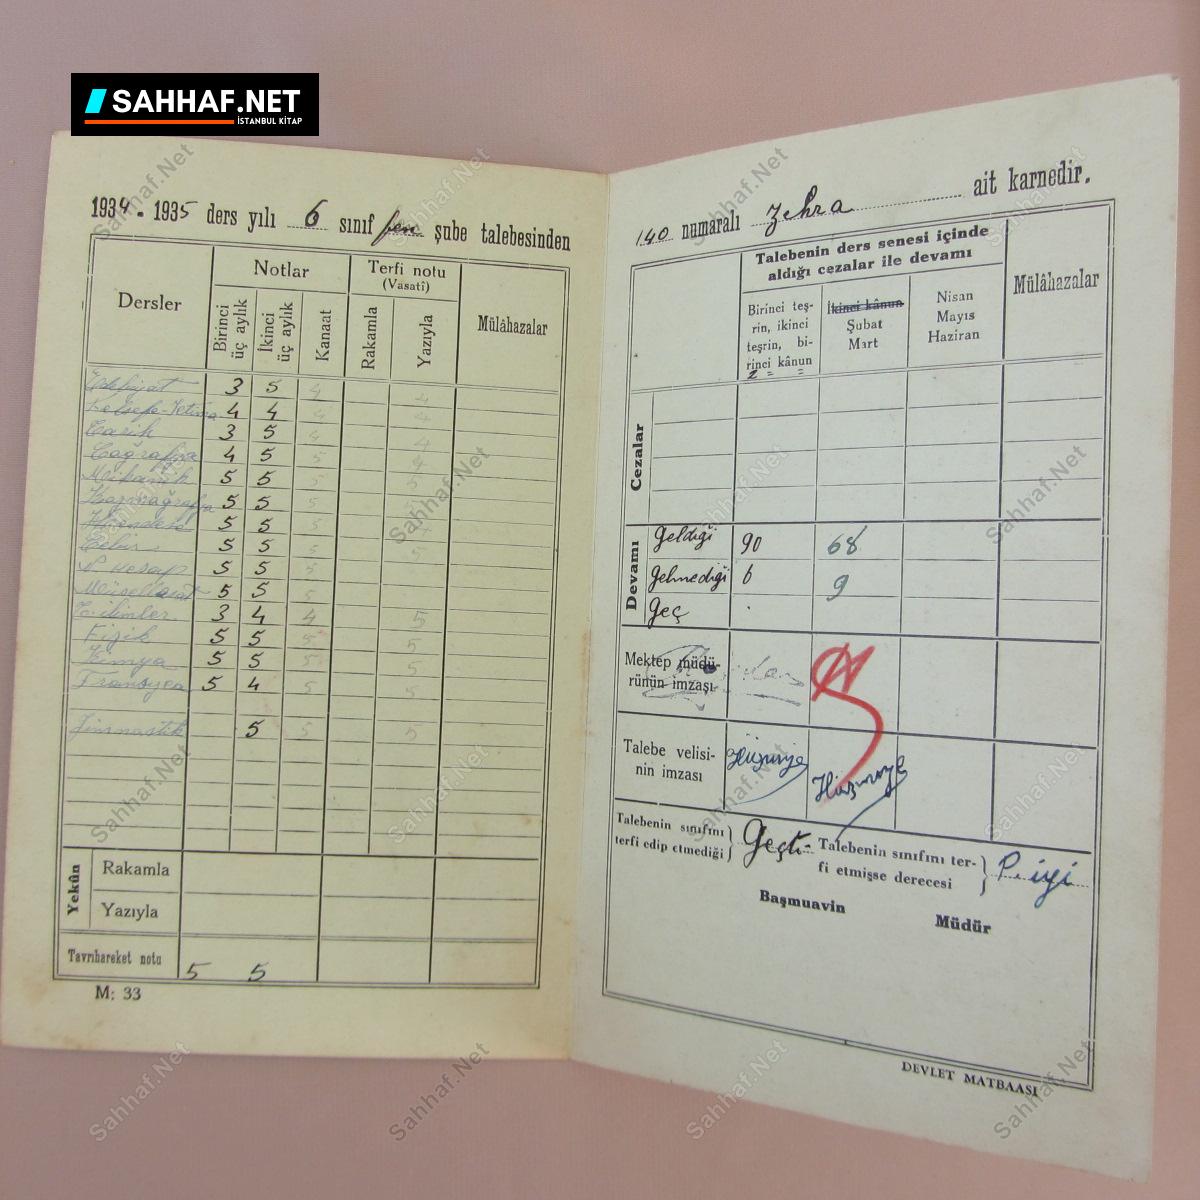 SAHHAF.NET
İSTANBUL KİTAP
1934 - 1935 ders yılı 6 sınıf fen şube talebesinden
Dersler
Notlar
Birinci üç aylık
İkinci üç aylık
Kanaat
Terfi notu
(Vasatî)
Rakamla
Yazıyla
Mülâhazalar
Edebiyat 3 5 4 4
Felsefe-İctima 4 4 4 4
Tarih 3 5 4 4
Coğrafya 4 5 5 4
Mikanik 5 5 5 5
Kozmoğrafya 5 5 5
Hendese 5 5 5
Cebir 5 5 5 5
N. Hesap 5 5 5
Müsellesat 5 5 5
T. ilimler 3 4 4 5
Fizik 5 5 5 5
Kimya 5 5 5 5
Fransızca 5 4 5 5
Jimnastik 5 5 5
Yekûn
Rakamla
Yazıyla
Tavrıhareket notu 5 5
M: 33
140 numaralı Zehra ait karnedir.
Talebenin ders senesi içinde
aldığı cezalar ile devamı
Mülâhazalar
Birinci teş-
rin, ikinci
teşrin, bi-
rinci kânun
2 = =
İkinci kânun
Şubat
Mart
Nisan
Mayıs
Haziran
Cezalar
Devamı
Geldiği 90 68
Gelmediği 6 9
Geç
Mektep müdü-
rünün imzası
Talebe velisi-
nin imzası
Talebenin sınıfını
terfi edip etmediği
Geçti-
Talebenin sınıfını ter-
fi etmişse derecesi
P. iyi
Başmuavin
Müdür
DEVLET MATBAASI
Sahhaf.Net